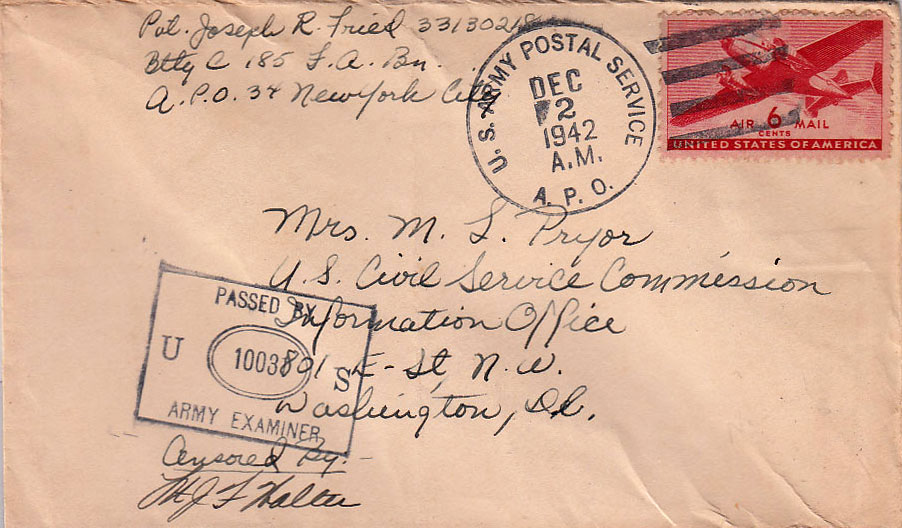 Pvt. Joseph R. Fried 33130218
Btty C 185 F.A. Bn.
A.P.O. 34 New York City
U.S. ARMY POSTAL SERVICE
DEC
2
1942
A.M.
A. P. O.
AIR 6 MAIL
CENTS
UNITED STATES OF AMERICA
Mrs. M. L. Pryor
U.S. Civil Service Commission
Information Office
801 E-St, N.W.
Washington, D.C.
PASSED BY
U 1003 S
ARMY EXAMINER
Censored By:-